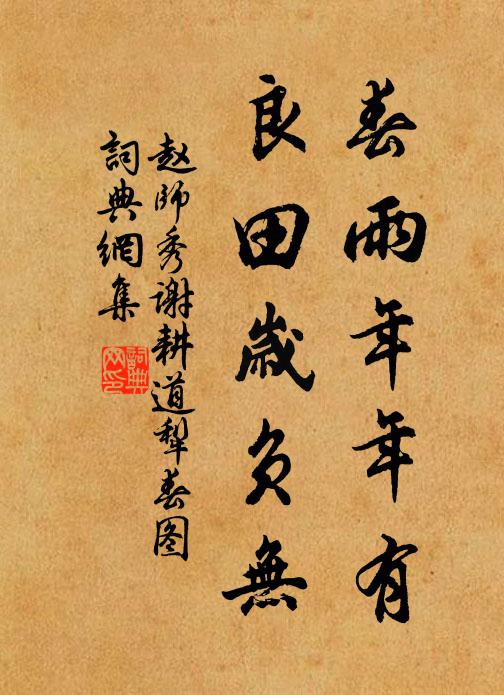 春雨年年有
良田歲無
赵師秀谢耕道犁春图
詞典網集
詞典网印